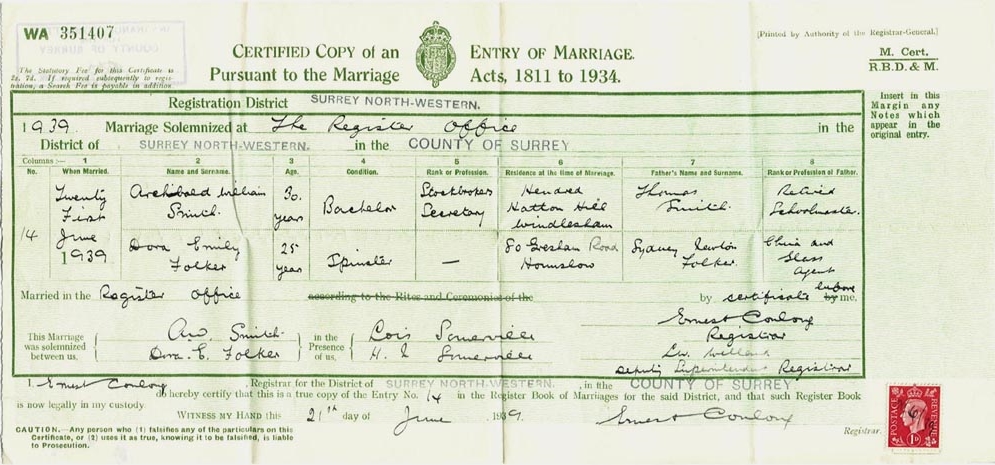 WA 351407
The Statutory Fee for this Certificate is
2s. 7d. If required subsequently to regis-
tration, a Search Fee is payable in addition.
CERTIFIED COPY of an ENTRY OF MARRIAGE.
Pursuant to the Marriage Acts, 1811 to 1934.
[Printed by Authority of the Registrar-General.]
M. Cert.
R.B.D. & M.
Insert in this
Margin any
Notes which
appear in the
original entry.
Registration District SURREY NORTH-WESTERN.
1939. Marriage Solemnized at The Register Office in the
District of SURREY NORTH-WESTERN. in the COUNTY OF SURREY
Columns :— 1 2 3 4 5 6 7 8
No. When Married. Name and Surname. Age. Condition. Rank or Profession. Residence at the time of Marriage. Father's Name and Surname. Rank or Profession of Father.
14
Twenty First June 1939
Archibald William Smith
30 years
Bachelor
Stockbrokers Secretary
Hendred Hatton Hill Windlesham
Thomas Smith
Retired Schoolmaster
Dora Emily Folker
25 year
Spinster
—
80 Gresham Road Hounslow
Sydney Newton Folker.
China and Glass Agent
Married in the Register Office according to the Rites and Ceremonies of the by certificate before by me,
This Marriage was solemnized between us,
A W. Smith
Dora E. Folker
in the Presence of us,
Lois Somerville
H. E Somerville
Ernest Conlong
Registrar
Deputy Superintendent Registrar
I, Ernest Conlong, Registrar for the District of SURREY NORTH-WESTERN. in the COUNTY OF SURREY
do hereby certify that this is a true copy of the Entry No. 14 in the Register Book of Marriages for the said District, and that such Register Book
is now legally in my custody.
WITNESS MY HAND this 21st day of June 1939.
Ernest Conlong
Registrar.
CAUTION.—Any person who (1) falsifies any of the particulars on this
Certificate, or (2) uses it as true, knowing it to be falsified, is liable
to Prosecution.
POSTAGE
REVENUE
1D